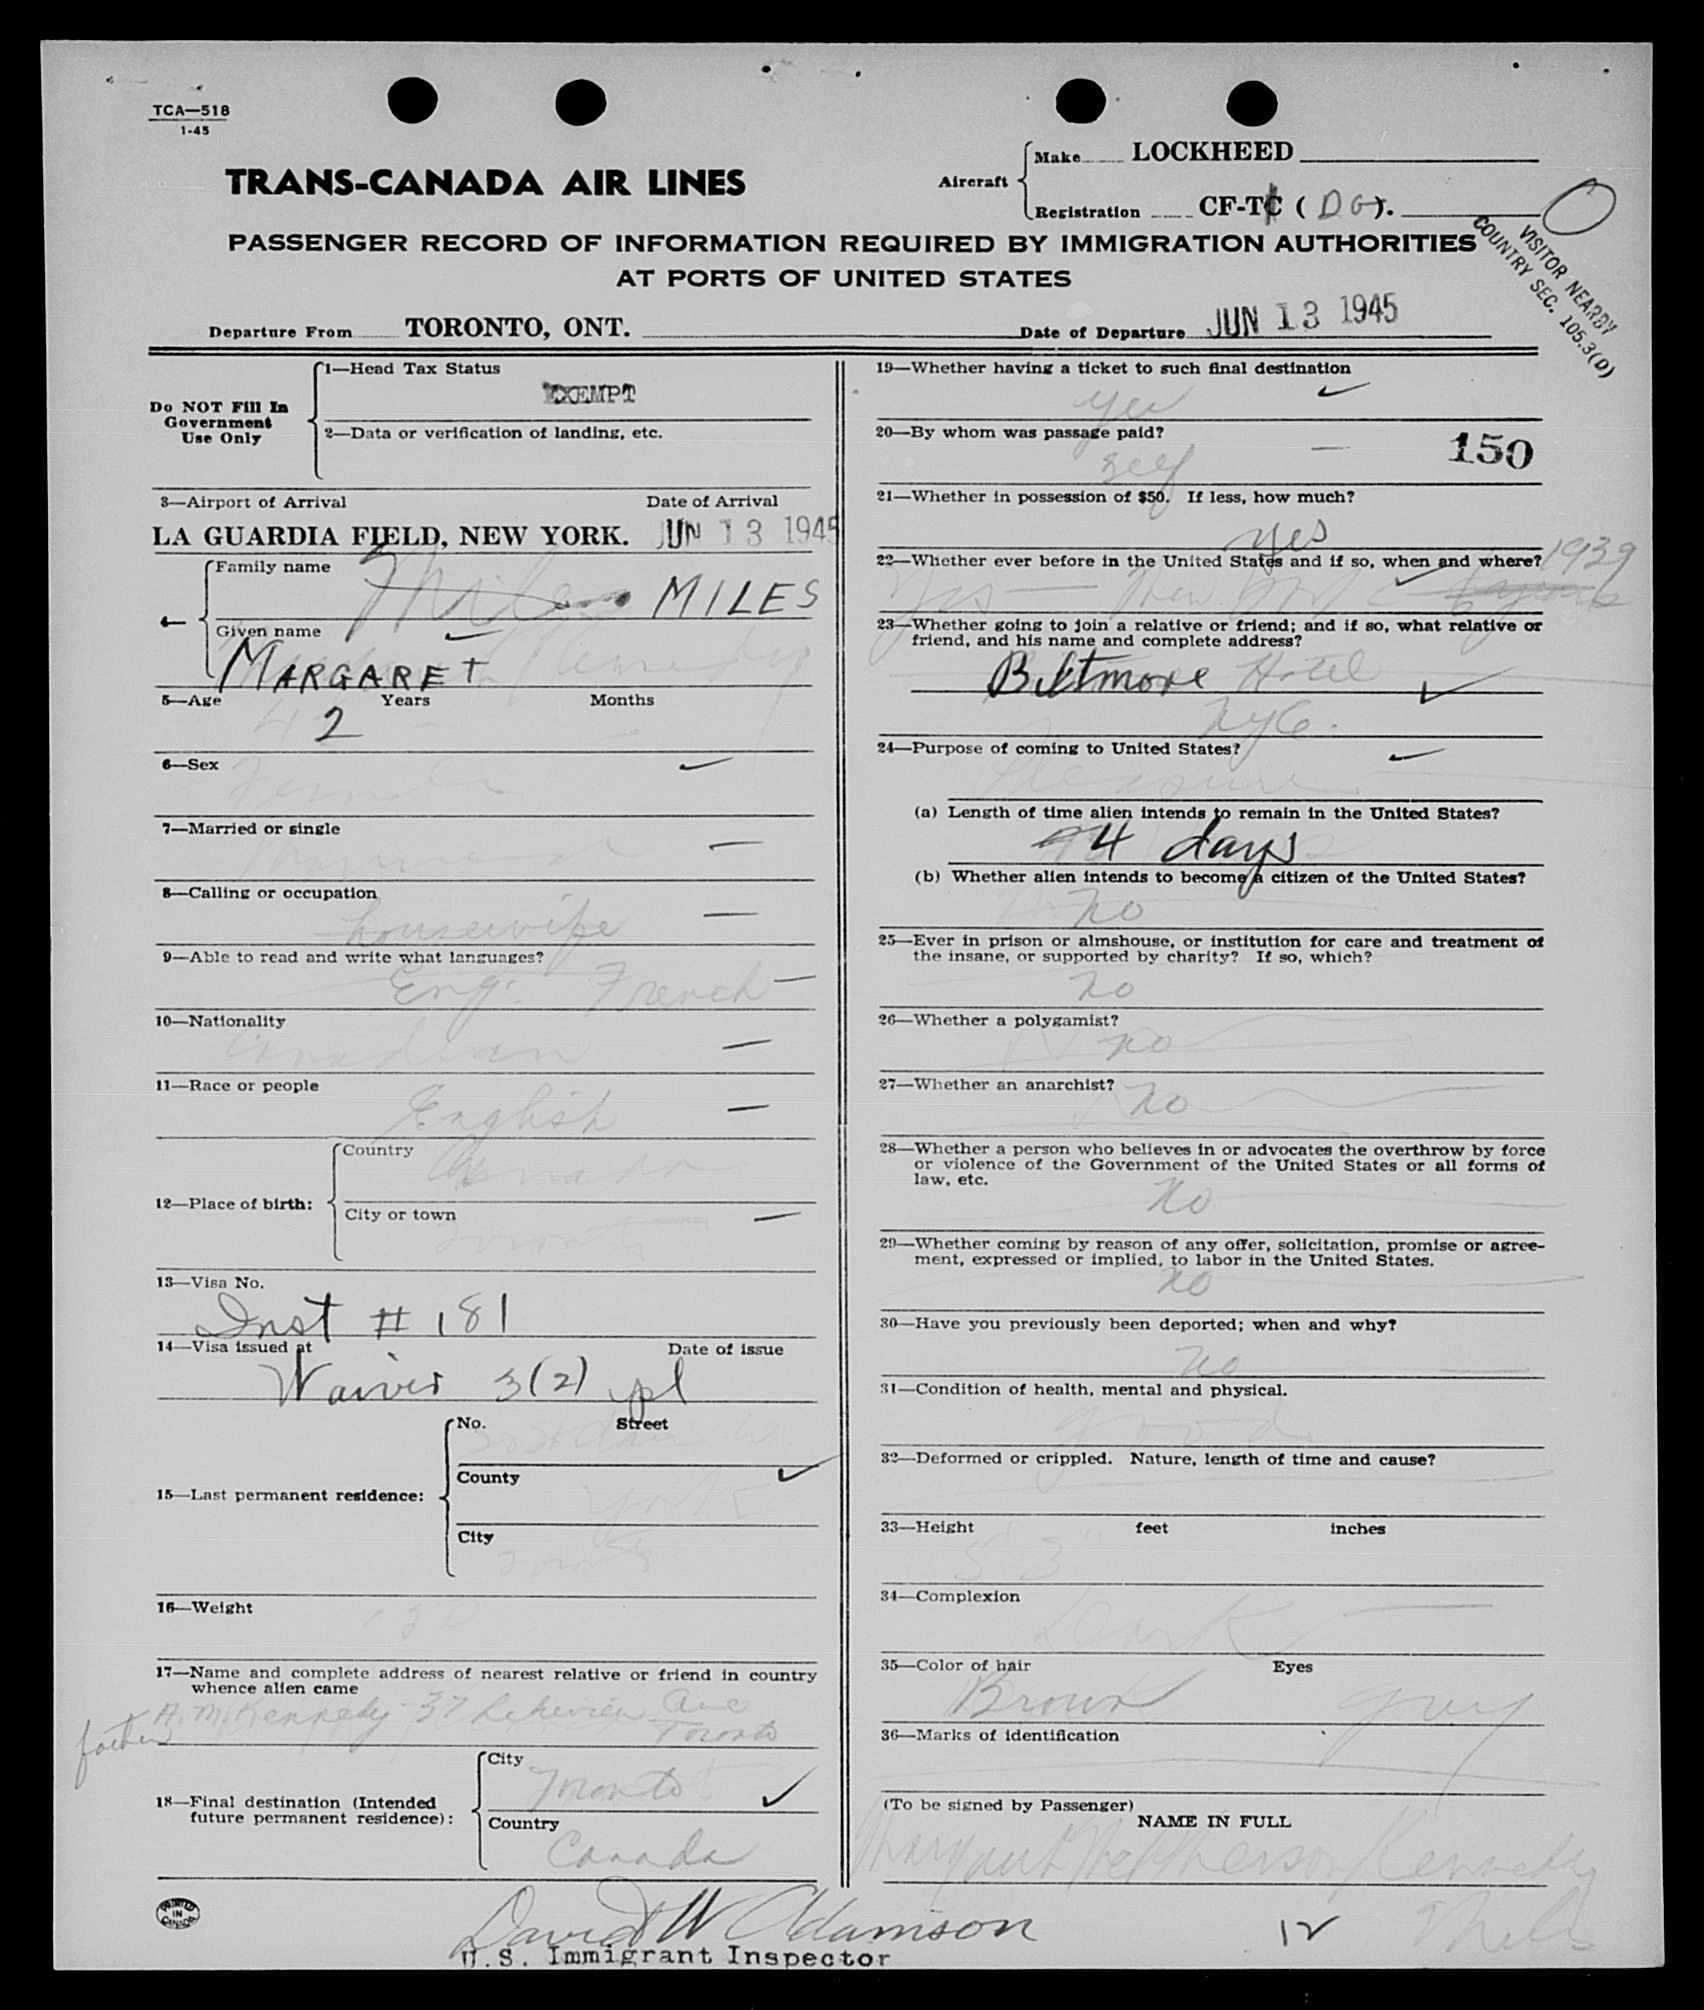 TCA—518
1-45
TRANS-CANADA AIR LINES
Aircraft
Make LOCKHEED
Registration CF-TC (DG).
PASSENGER RECORD OF INFORMATION REQUIRED BY IMMIGRATION AUTHORITIES
AT PORTS OF UNITED STATES
VISITOR NEARBY
COUNTRY SEC. 105.3(D)
Departure From TORONTO, ONT. Date of Departure JUN 13 1945
Do NOT Fill In
Government
Use Only
1—Head Tax Status
EXEMPT
2—Data or verification of landing, etc.
3—Airport of Arrival Date of Arrival
LA GUARDIA FIELD, NEW YORK. JUN 13 1945
4—
Family name
Miles MILES
Given name
MARGARET
5—Age Years Months
42
6—Sex
Female
7—Married or single
Married
8—Calling or occupation
housewife
9—Able to read and write what languages?
Eng. French
10—Nationality
Canadian
11—Race or people
English
12—Place of birth:
Country
Canada
City or town
Toronto
13—Visa No.
Inst # 181
14—Visa issued at Date of issue
Waiver 3(2) ypl
15—Last permanent residence:
No. Street
County
York
City
Toronto
16—Weight
17—Name and complete address of nearest relative or friend in country
whence alien came
father A. M. Kennedy - 37 Lakeview Ave
Toronto
18—Final destination (Intended
future permanent residence):
City
Toronto
Country
Canada
PRINTED
IN
CANADA
19—Whether having a ticket to such final destination
yes
20—By whom was passage paid?
self
150
21—Whether in possession of $50. If less, how much?
yes
22—Whether ever before in the United States and if so, when and where?
Yes — New York 1939
23—Whether going to join a relative or friend; and if so, what relative or
friend, and his name and complete address?
Biltmore Hotel
NYC.
24—Purpose of coming to United States?
Pleasure
(a) Length of time alien intends to remain in the United States?
4 days
(b) Whether alien intends to become a citizen of the United States?
no
25—Ever in prison or almshouse, or institution for care and treatment of
the insane, or supported by charity? If so, which?
no
26—Whether a polygamist?
no
27—Whether an anarchist?
no
28—Whether a person who believes in or advocates the overthrow by force
or violence of the Government of the United States or all forms of
law, etc.
no
29—Whether coming by reason of any offer, solicitation, promise or agree-
ment, expressed or implied, to labor in the United States.
no
30—Have you previously been deported; when and why?
no
31—Condition of health, mental and physical.
good
32—Deformed or crippled. Nature, length of time and cause?
33—Height feet inches
5 3"
34—Complexion
Dark
35—Color of hair Eyes
Brown grey
36—Marks of identification
(To be signed by Passenger)
NAME IN FULL
Margaret McPherson Kennedy
Miles
David W Adamson
U.S. Immigrant Inspector
12